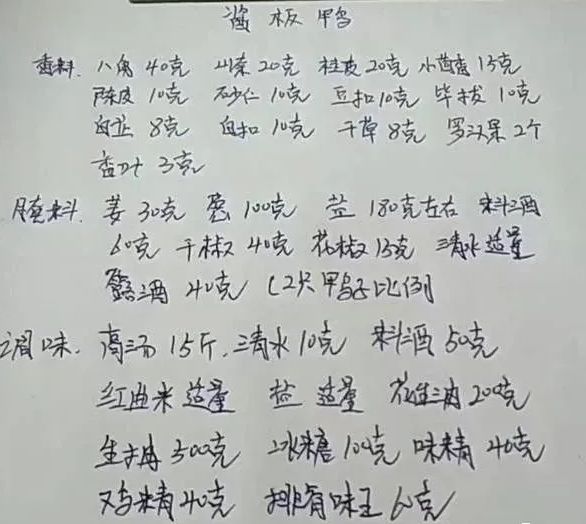 酱板鸭
香料. 八角40克 山柰20克 桂皮20克 小茴香15克
陈皮10克 砂仁10克 豆扣10克 毕拔10克
白芷8克 白扣10克 干草8克 罗汉果2个
香叶3克
腌料. 姜30克 葱100克 盐180克左右 料酒
60克 干椒40克 花椒15克 清水适量
露酒40克 (2只鸭子比例)
调味. 高汤15斤. 清水10克 料酒50克
红曲米适量 盐适量 花生油200克
生抽300克 冰糖100克 味精40克
鸡精40克 排骨味王60克